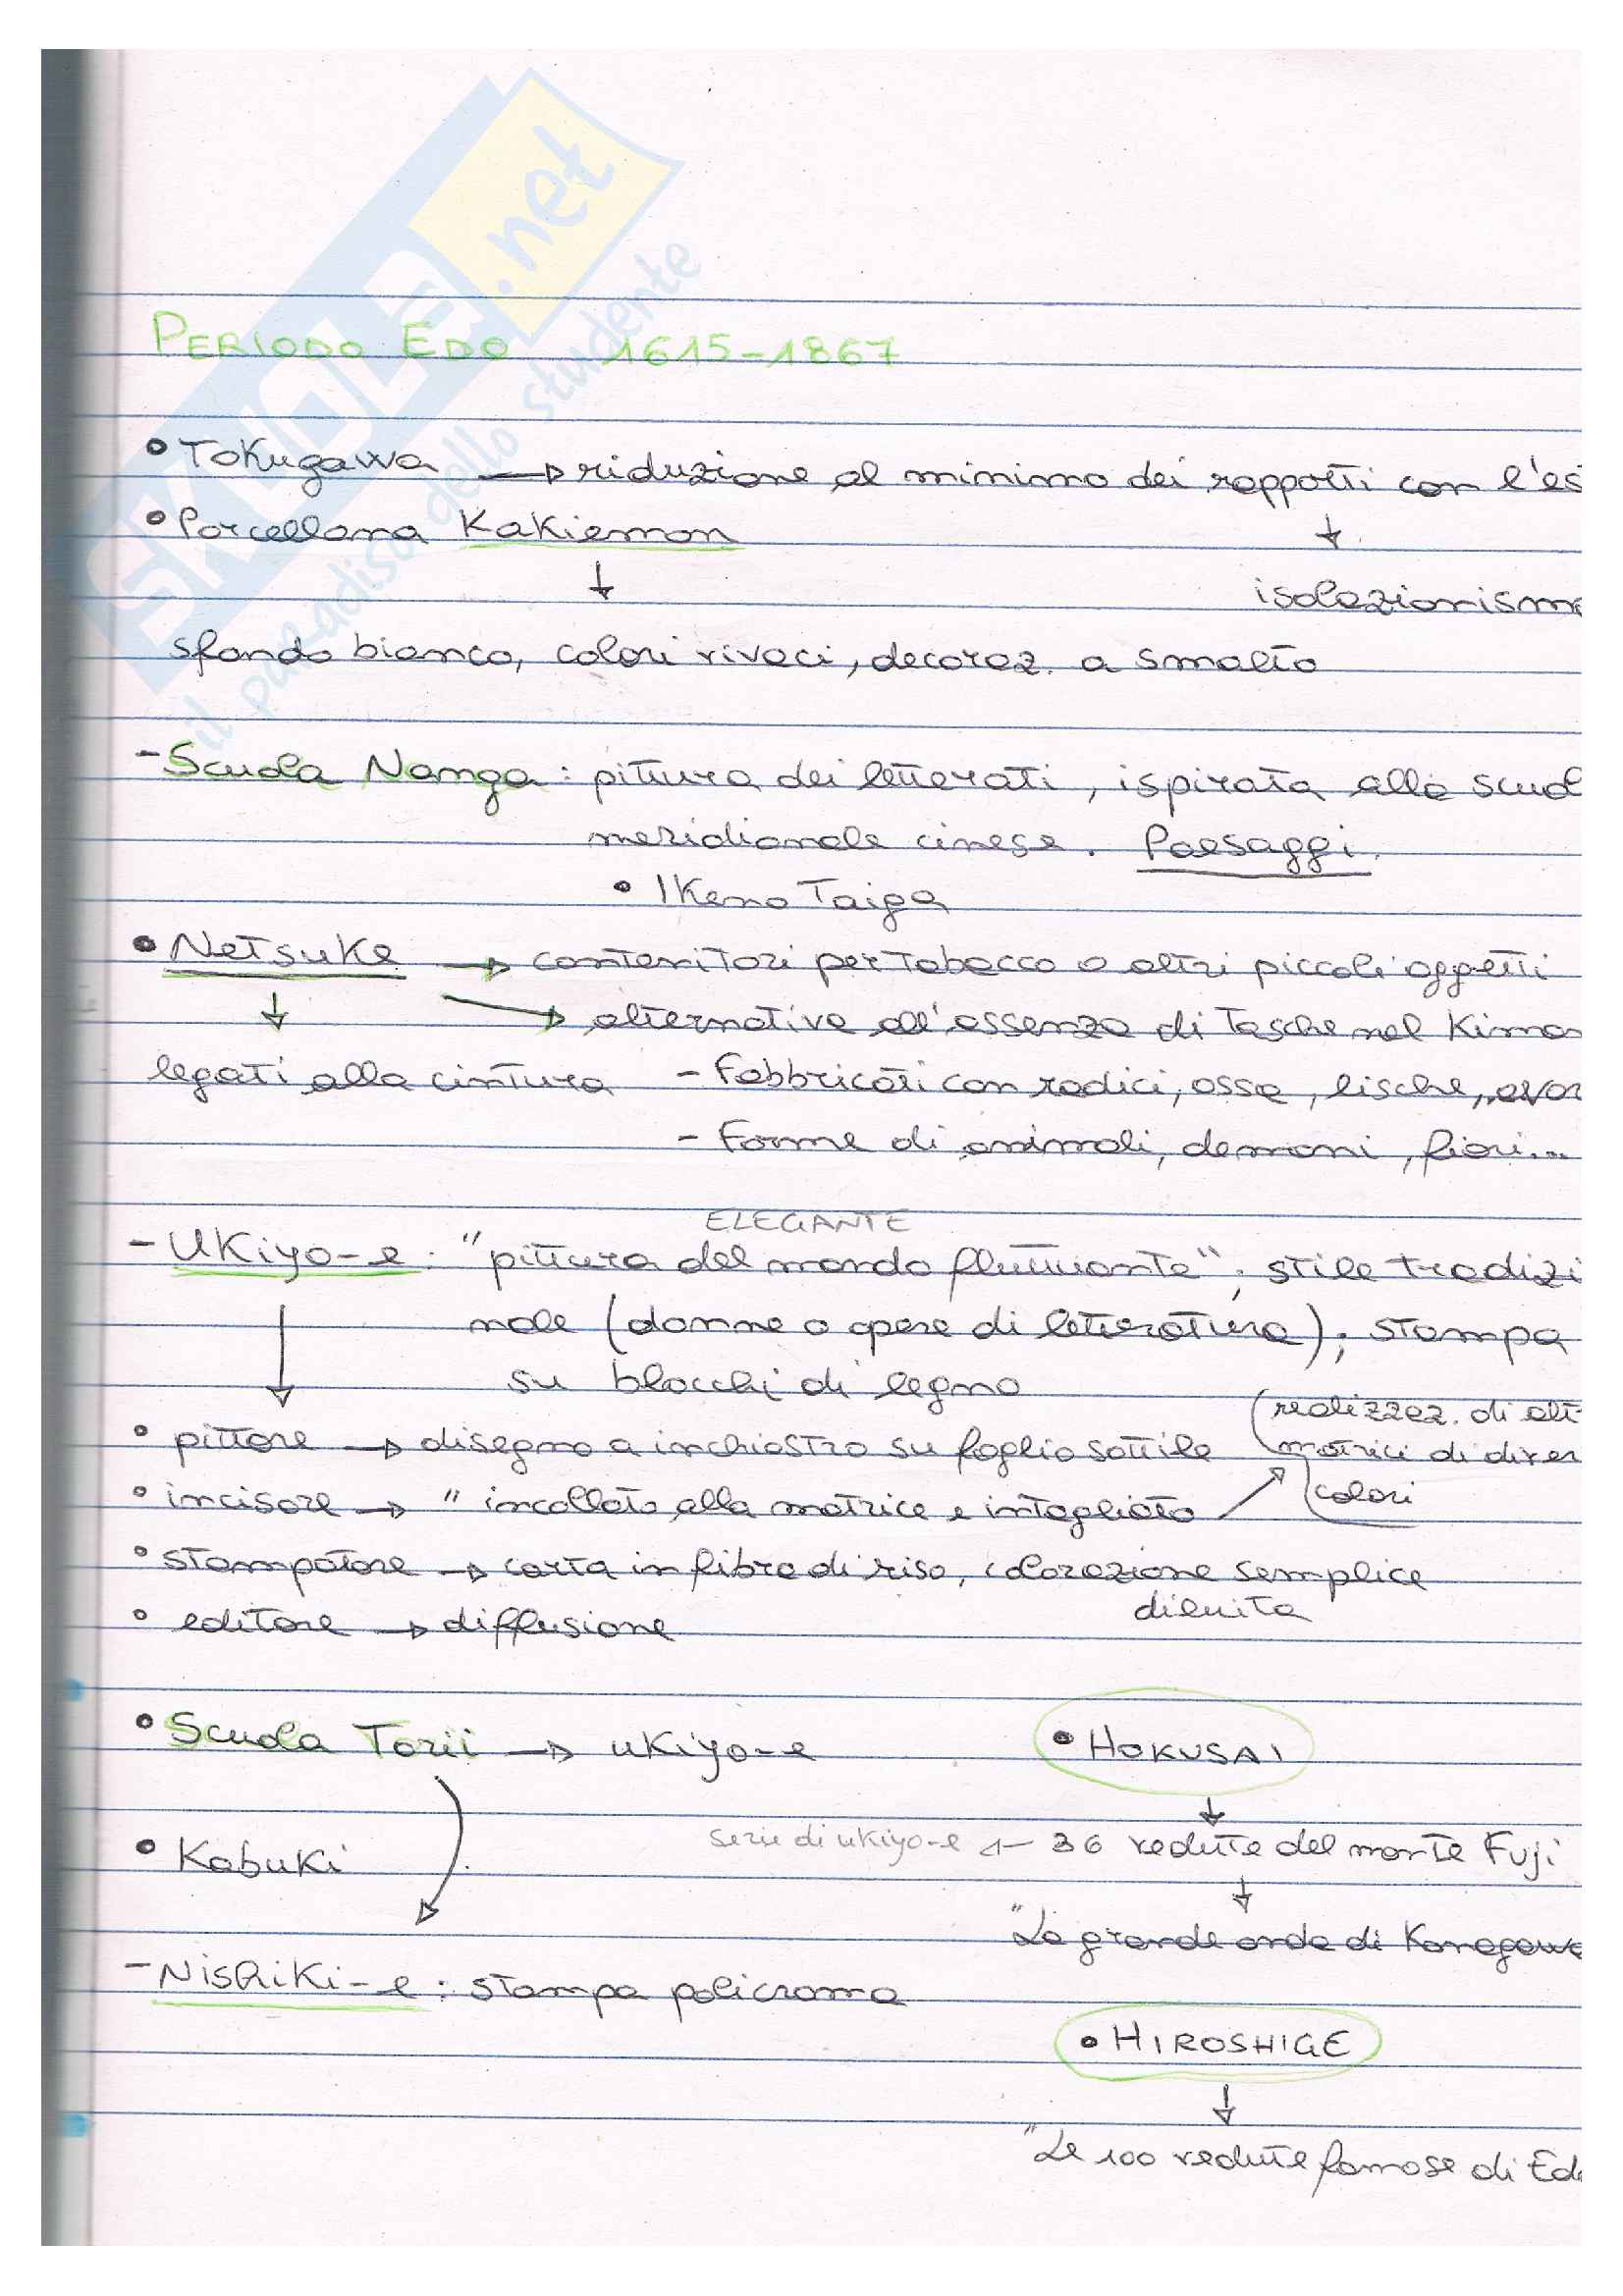 SKUOLA.net
il paradiso dello studente
PERIODO EDO 1615-1867
• Tokugawa → riduzione al minimo dei rapporti con l'es
• Porcellana Kakiemon ↓
↓ isolazionismo
sfondo bianco, colori vivaci, decoraz. a smalto
- Scuola Nanga : pittura dei letterati, ispirata alla scuol
meridionale cinese. Paesaggi.
• Ikeno Taiga
• Netsuke → contenitori per tabacco o altri piccoli oggetti
↓ → alternativa all'assenza di tasche nel kimon
legati alla cintura - Fabbricati con radici, ossa, lische, avor
- Forme di animali, demoni, fiori...
ELEGANTE
- Ukiyo-e : "pittura del mondo fluttuante"; stile tradizi
nale (donne o opere di letteratura); stampa
su blocchi di legno
(realizzaz. di alt
• pittore → disegno a inchiostro su foglio sottile matrici di diver
• incisore → " incollato alla matrice e intagliato ↗ colori
• stampatore → carta in fibra di riso, colorazione semplice
diluita
• editore → diffusione
• Scuola Torii → ukiyo-e • HOKUSAI
↓
• Kabuki serie di ukiyo-e ← 36 vedute del monte Fuji
↓
"La grande onda di Kanagawa
- Nishiki-e : stampa policroma
• HIROSHIGE
↓
"Le 100 vedute famose di Edo